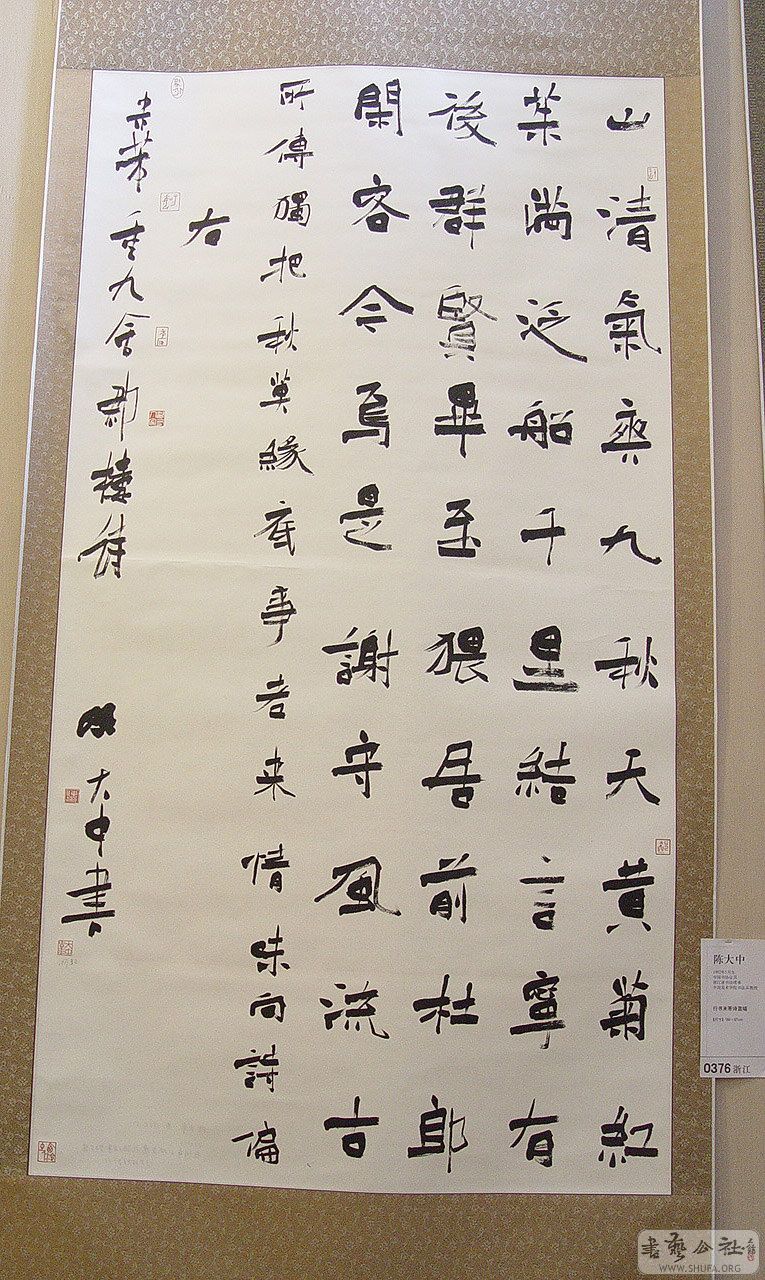 山清氣爽九秋天黄菊紅
茱滿泛船千里結言寧有
後群賢畢至猥居前杜郎
閑客今焉是謝守風流古
所傳獨把秋英緣底事老来情味向詩偏
右
米芾重九會郡樓詩 大中書
陈大中
0376 浙江
書藝公社
WWW.SHUFA.ORG